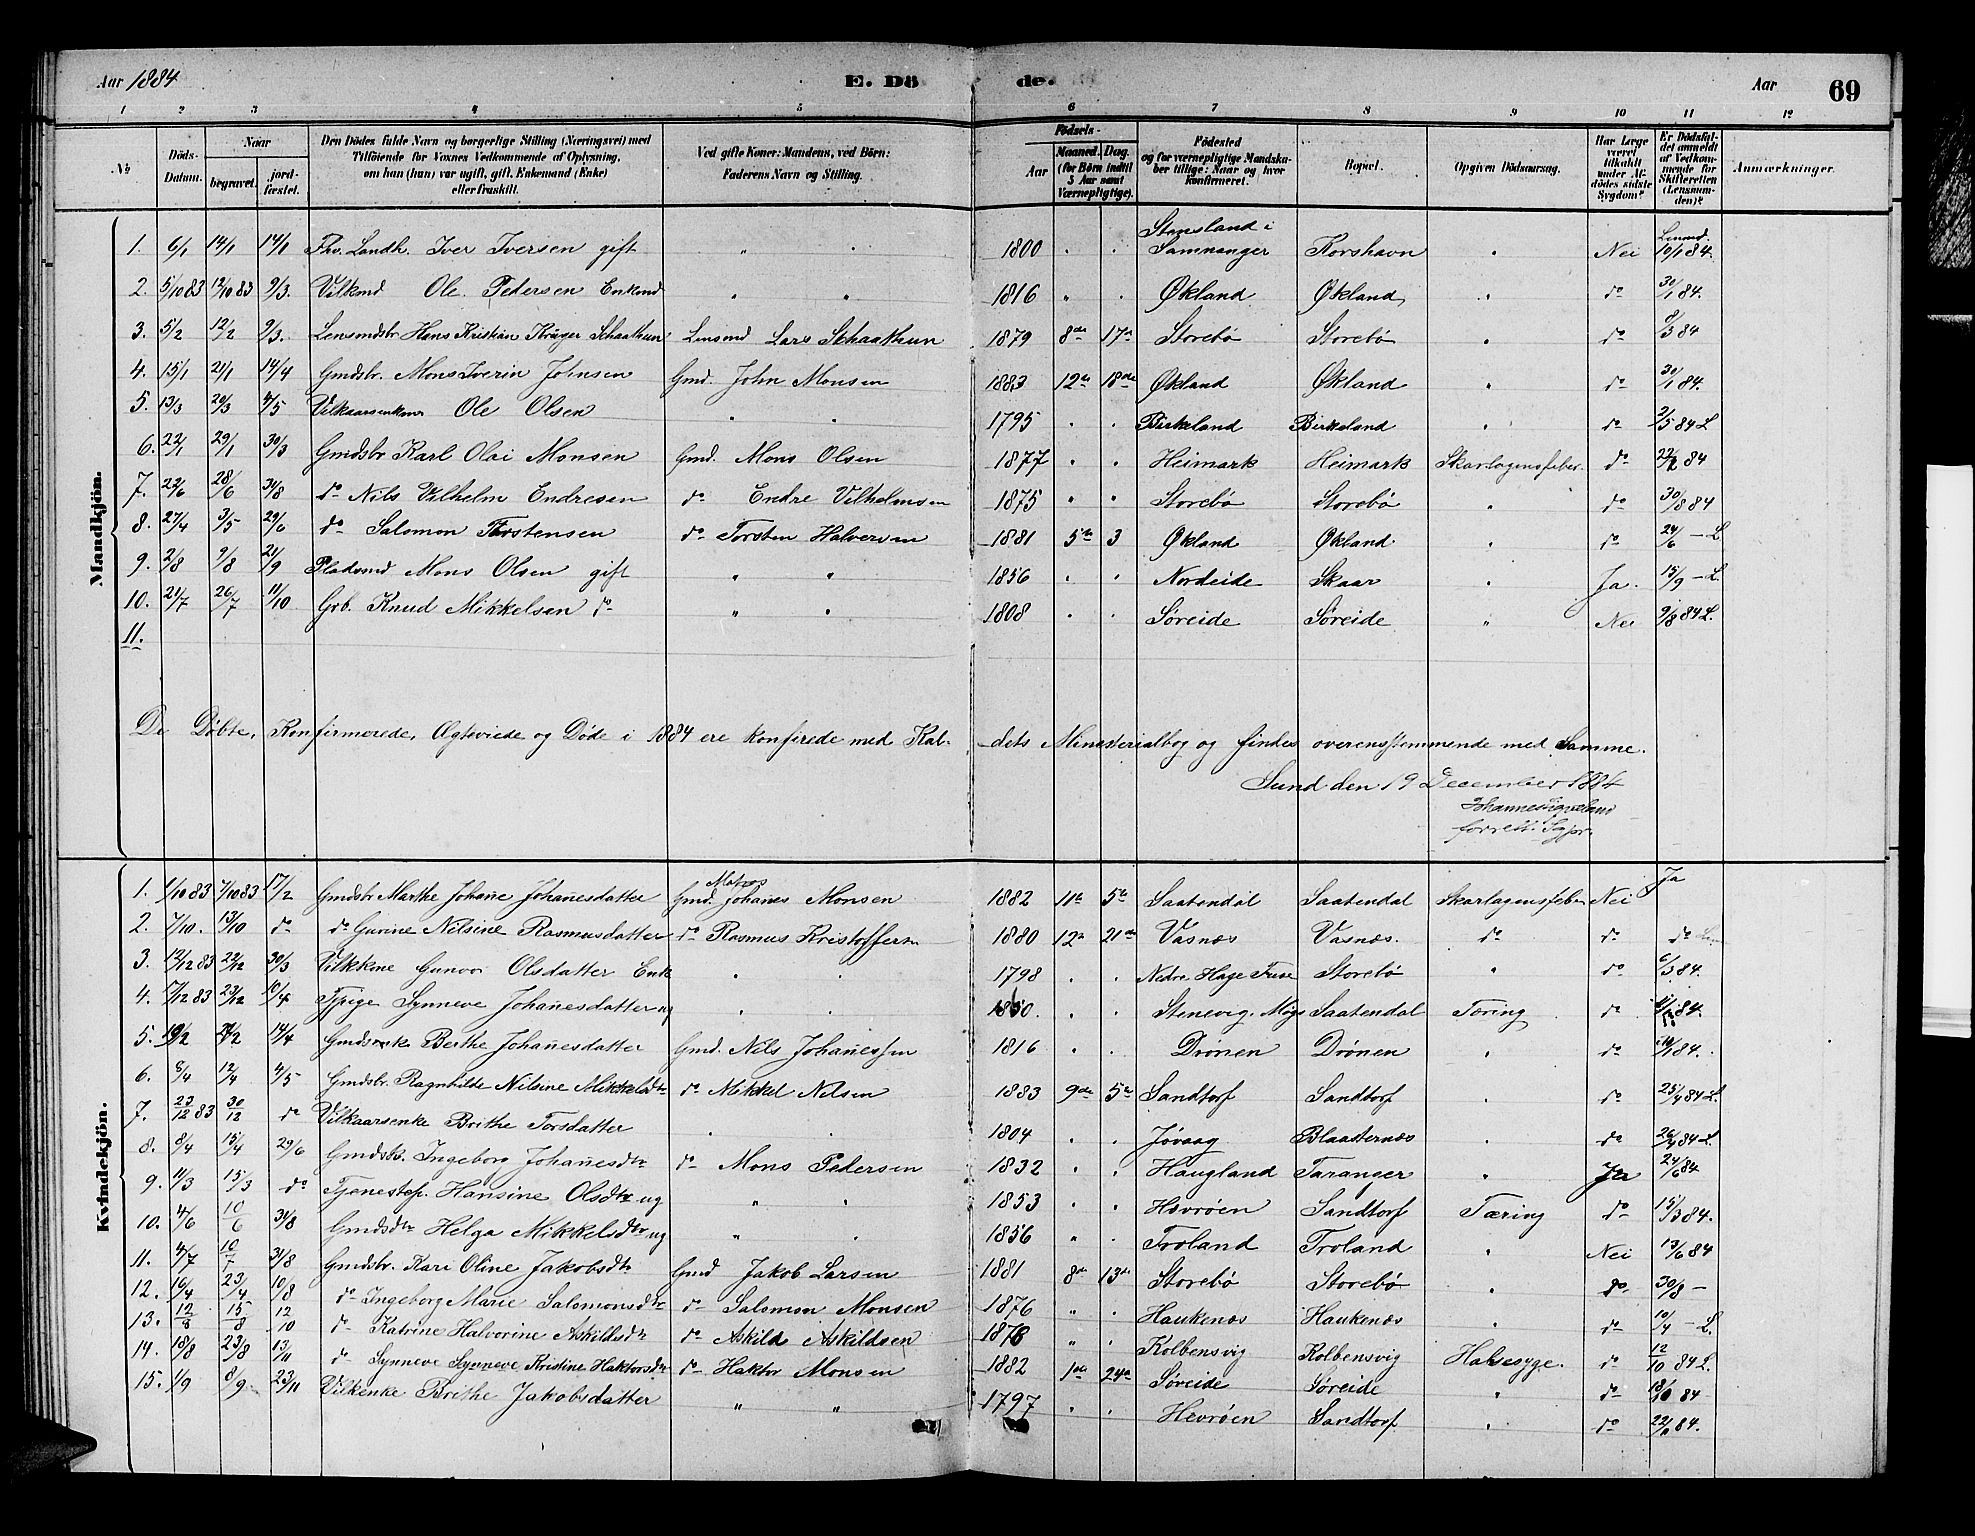 Aar 1884 E. Dö de. Aar 69
1 2 3 4 5 6 7 8 9 10 11 12
№ Döds-Datum. Naar begravet. jordfæstet. Den Dödes fulde Navn og borgerlige Stilling (Næringsvei) med Tilföiende for Voxnes Vedkommende af Oplysning, om han (hun) var ugift, gift, Enkemand (Enke) eller fraskilt. Ved gifte Koner: Mandens, ved Börn: Faderens Navn og Stilling. Födsels- Aar Maaned. Dag. (for Börn indtil 5 Aar samt Værnepligtige). Födested og for værnepligtige Mandskaber tillige: Naar og hvor Konfirmeret. Bopæl. Opgiven Dödsaarsag. Har Læge været tilkaldt under Afdödes sidste Sygdom? Er Dödsfaldet anmeldt af Vedkommende for Skifteretten (Lensmanden)? Anmærkninger.
Mandkjön.
1. 6/1 14/1 14/1 Fhv. Landh. Iver Iversen gift " " 1800 " " Stensland i Samnanger Korshavn " Nei Lensmd 10/1 84.
2. 5/10 83 12/10 83 9/3. Vilkmd Ole Pedersen Enkemd " " 1816 " " Økland Økland " do 30/1 84.
3. 5/2 12/2 9/3. Lensmdsbr. Hans Kristian Krüger Schaathun Lensmd Lars Schaathun 1879 8de 17de Storebø Storebø " do 8/3 84
4. 15/1 21/1 14/4 Gmdsbr. Mons Iverin Johnsen Gmd. John Monsen 1883 12te 18de Økland Økland " do 30/1 84.
5. 13/3 20/3 4/5 Vilkaarsenkem Ole Olsen " " 1795 " " Birkeland Birkeland " do 2/5 84 L
6. 22/1 29/1 30/3 Gmdsbr Karl Olai Monsen Gmd. Mons Olsen 1877 " " Heimark Heimark Skarlagensfeber do 22/2 84
7. 22/6 28/6 31/8 do Nils Vilhelm Endresen do Endre Vilhelmsen 1875 " " Storebø Storebø " do 30/8 84
8. 27/4 3/5 29/6 do Salomon Torstensen do Torsten Halversen 1881 5te 3 Økland Økland " do 24/6 - L
9. 2/8 9/8 21/9 Pladsmd Mons Olsen gift " " 1856 " " Nordeide Skaar " Ja. 15/9 - L.
10. 21/7 26/7 11/10 Grb. Knud Mikkelsen do " " 1808 " " Søreide Søreide " Nei 9/8 84 L.
11.
De Døbte, Konfirmerede, Ægteviede og Døde i 1884 ere konferede med Kaldets Ministerialbog og findes overensstemmende med Samme.
Sund den 19 December 1884
Johannes Sigveland
forrett. Sgpr.
Kvindekjön.
1. 1/10 83 7/10 83 17/2 Gmdsbr Marthe Johane Johanesdatter Gmd. Johanes Monsen 1882 11te 5te Saatendal Saatendal Skarlagensfeber Nei Ja
2. 7/10. 13/10 do do Gurine Nilsine Rasmusdatter do Rasmus Kristoffersn 1880 12te 21de Vasnæs Vasnæs. do do do
3. 12/12 83 22/12 30/3 Vilkkone Gunvor Olsdatter Enk " " 1798 " " Nedre Hage Fuse Storebø " do 6/3 84.
4. 17/12 83 23/12 10/4 Tjpige Synneve Johanesdatter ug " " 1850. " " Stenevig. Møgs Saatendal Tæring do 84.
5. 14/4 Berthe Johanesdatter Gmd. Nils Johanessen 1816 " " Drönen Drönen " do 84.
6. 8/4 12/4 4/5 Gmdsbr. Ragnhilde Nilsine Mikkelsdtr do Mikkel Nilsen 1883 9de 5te Sandtorf Sandtorf " do 25/4 84 L.
7. 23/12 83 30/12 do Vilkaarsenke Brithe Torsdatter " " 1804 " " Jøvaag Blaasternæs " do 26/4 84 L
8. 8/4 15/4 29/6 Gmdsk. Ingeborg Johanesdtr do Mons Pedersen 1832 " " Haugland Taranger " Ja 24/6 84
9. 11/3 15/3 do Tjenestep. Hansine Olsdtr ug " " 1853 " " Hevrøen Sandtorf Tæring do 15/3 84.
10. 4/6 10/6 31/8 Gmdsdtr Helga Mikkelsdtr ug " " 1856 " " Troland Troland " Nei 13/6 84
11. 4/7 10/7 31/8 Gmdsbr. Kari Oline Jakobsdtr Gmd Jakob Larsen 1881 8de 13de Storebø Storebø " do 30/8 -
12. 16/4 23/4 10/8 do Ingeborg Marie Salomonsdtr do Salomon Monsen 1876 " " Haukenæs Haukenæs " do 10/4 - L.
13. 12/8 15/8 12/10 do Katrine Halvorine Askildsdtr do Askild Askildsen 1878 " " Kolbensvig Kolbensvig Halssyge. do 12/10 84 L.
14. 18/8 23/8 13/11 do Synneve Synneve Kristine Haktorsdtr do Haktor Monsen 1882 1ste 24de Søreide Søreide " do 18/10 84
15. 1/9 8/9 23/11 Vilkenke Brithe Jakobsdatter " " 1797 " " Hevrøen Sandtorf " do 84.